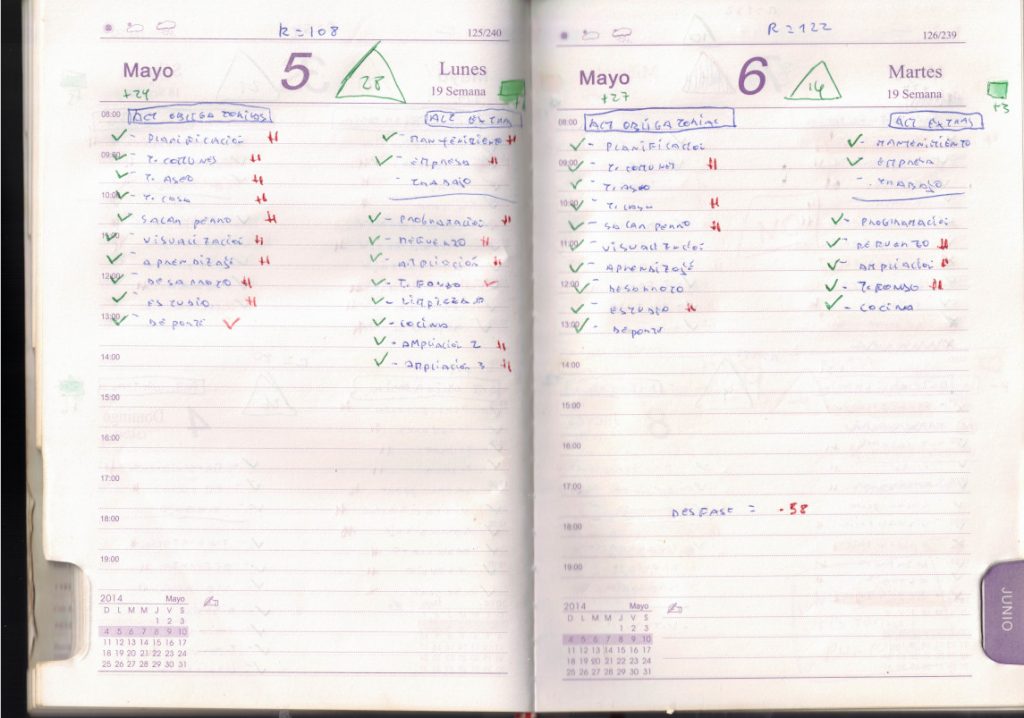 R = 108
125/240
Mayo
5
28
Lunes
19 Semana
+24
08:00
ACT OBLIGATORIAS
ACT EXTRAS
- PLANIFICACIÓN
- MANTENIMIENTO
09:00
- T. COMUNES
- EMPRESA
- T. ASEO
- TRABAJO
10:00
- T. CASA
- SACAR PERRO
- PROGRAMACIÓN
11:00
- VISUALIZACIÓN
- REFUERZO
- APRENDIZAJE
- AMPLIACIÓN
12:00
- DESARROLLO
- T. FONDO
- ESTUDIO
- LIMPIEZA
13:00
- DEPORTE
- COCINA
- AMPLIACIÓN 2
14:00
- AMPLIACIÓN 3
15:00
16:00
17:00
18:00
19:00
2014 Mayo
D L M M J V S
1 2 3
4 5 6 7 8 9 10
11 12 13 14 15 16 17
18 19 20 21 22 23 24
25 26 27 28 29 30 31
R = 122
126/239
Mayo
6
14
Martes
19 Semana
+27
+3
08:00
ACT OBLIGATORIAS
ACT EXTRAS
- PLANIFICACIÓN
- MANTENIMIENTO
09:00
- T. COMUNES
- EMPRESA
- T. ASEO
- TRABAJO
10:00
- T. CASA
- SACAR PERRO
- PROGRAMACIÓN
11:00
- VISUALIZACIÓN
- REFUERZO
- APRENDIZAJE
- AMPLIACIÓN
12:00
- DESARROLLO
- T. FONDO
- ESTUDIO
- COCINA
13:00
- DEPORTE
14:00
15:00
16:00
17:00
DESFASE = -58
18:00
19:00
2014 Mayo
D L M M J V S
1 2 3
4 5 6 7 8 9 10
11 12 13 14 15 16 17
18 19 20 21 22 23 24
25 26 27 28 29 30 31
JUNIO